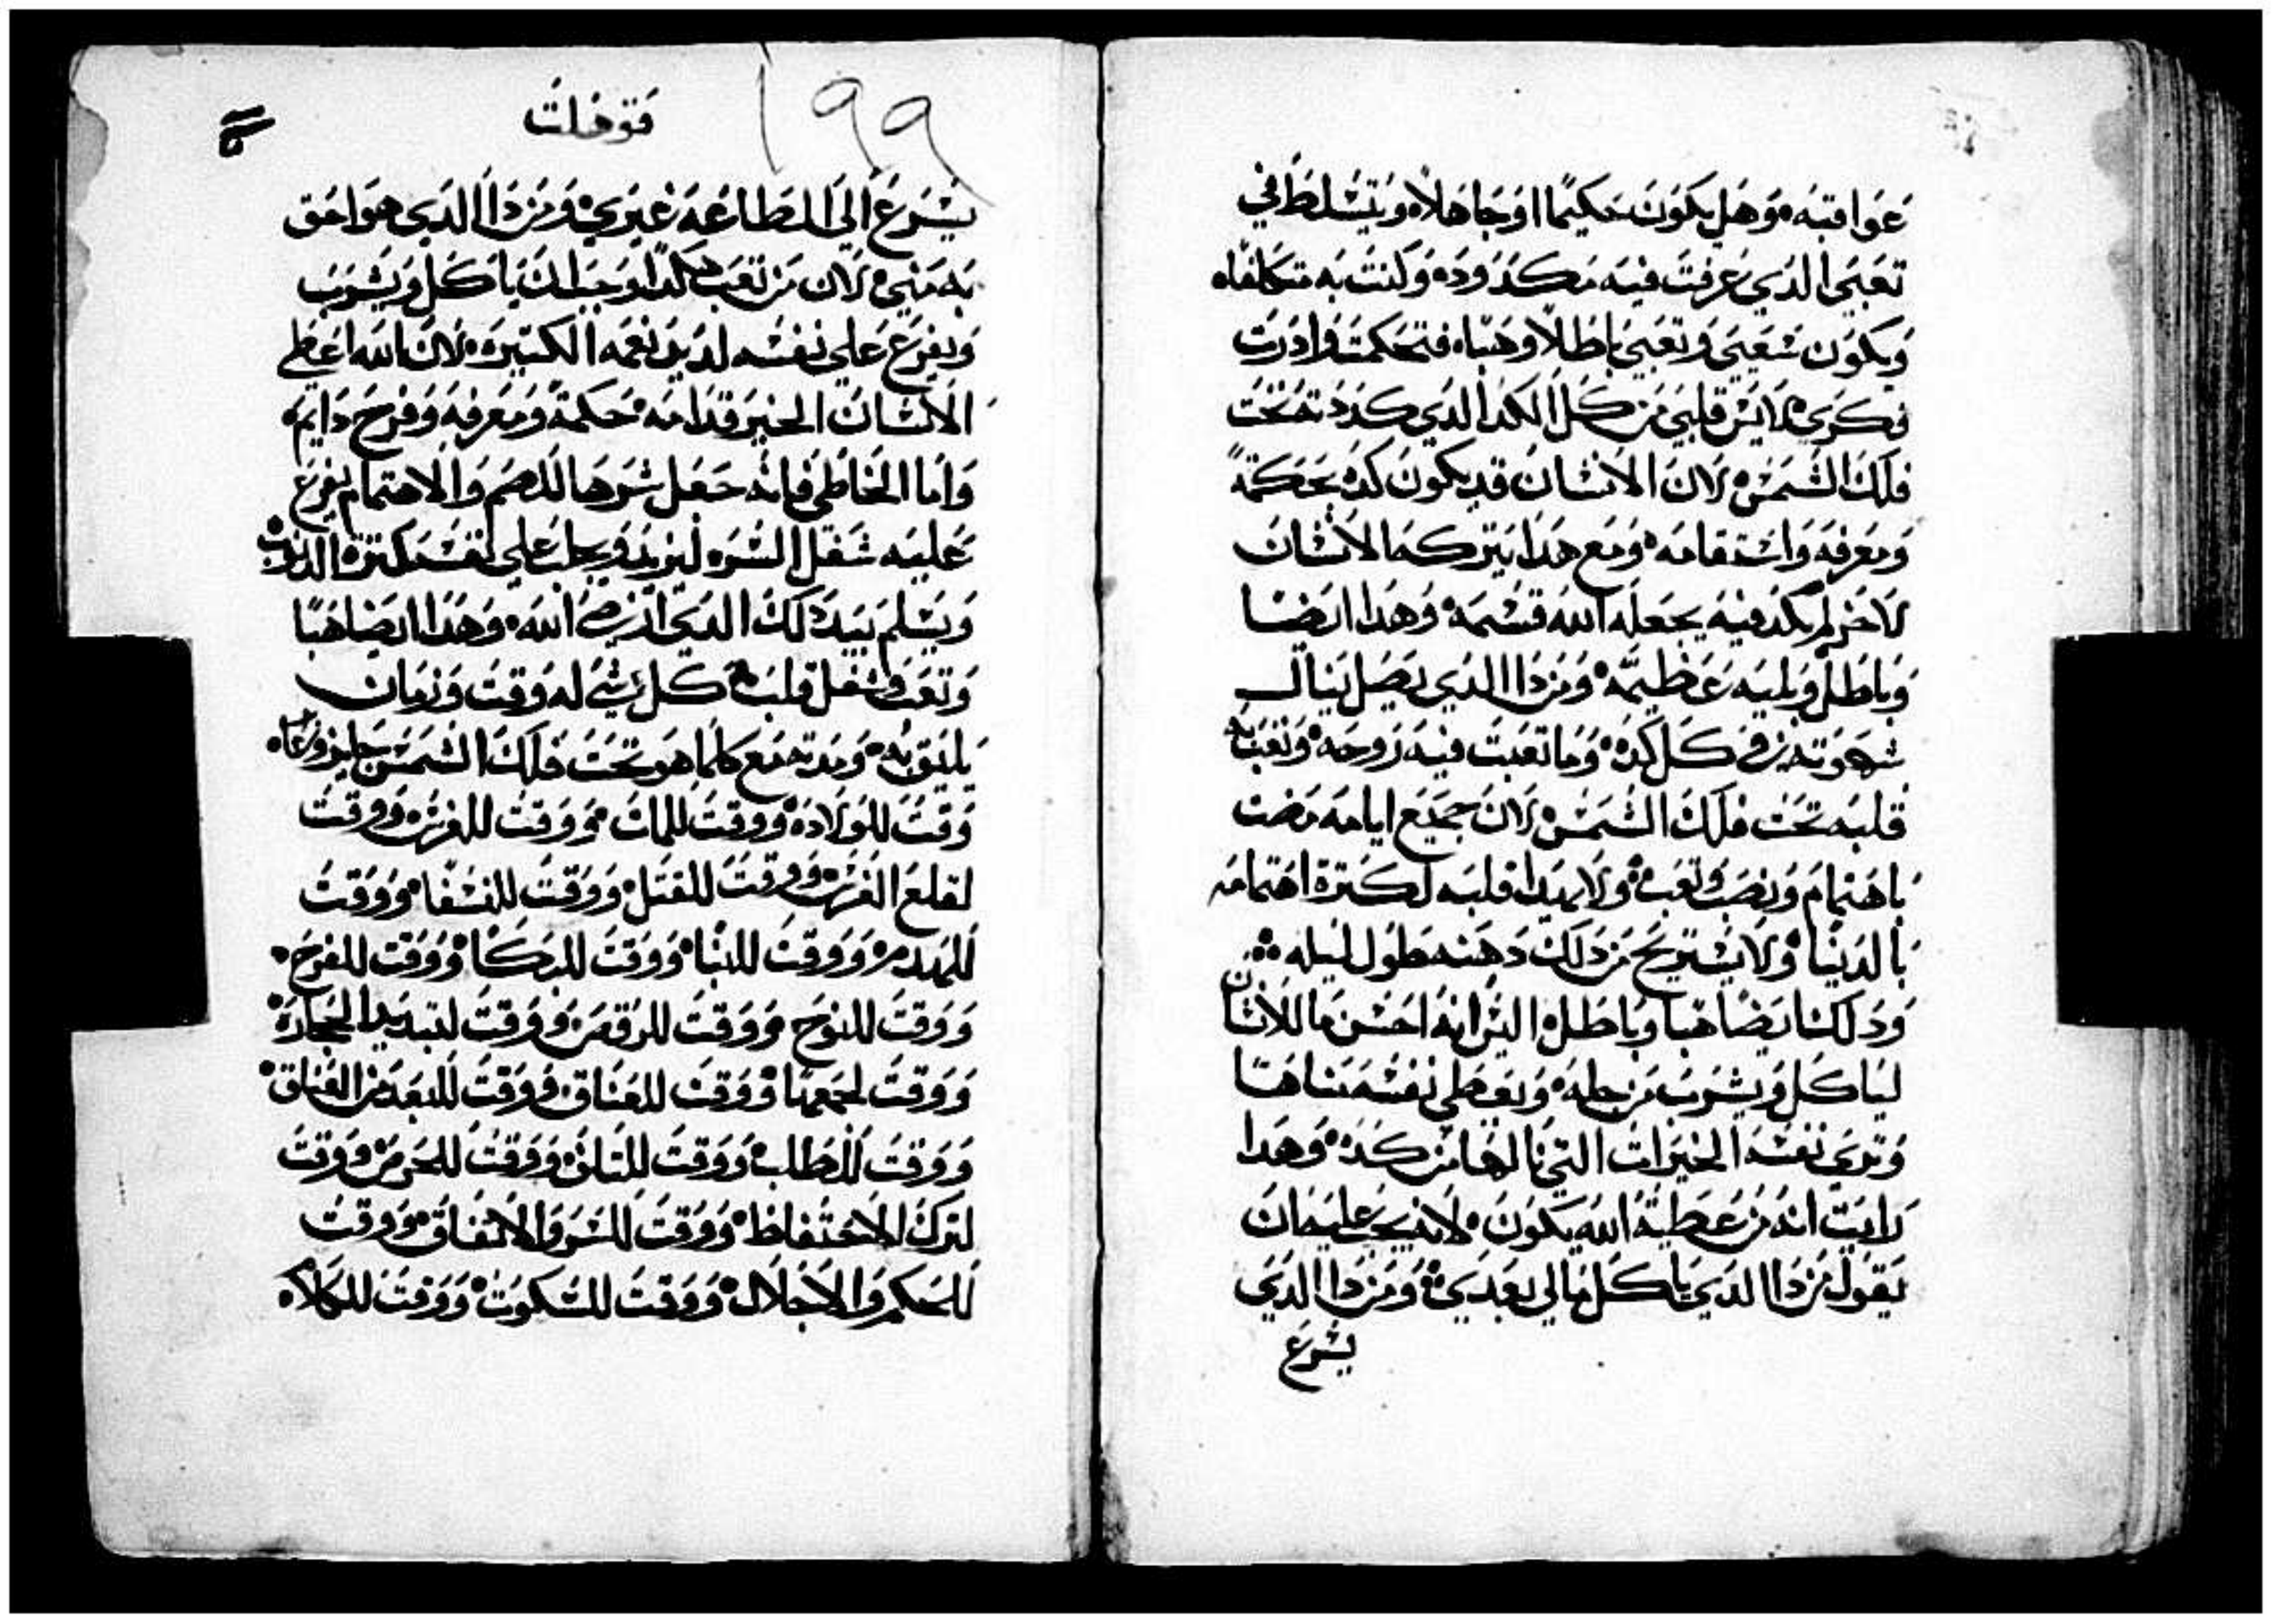 عواقبه وهل يكون حكيما او جاهلا ويتسلط في
تعبي الدي عرفت فيه مكدوده وكنت به متكلفا
ويكون شعبي وتعبي باطلا وهبا فتحكمت وادرت
فكري لايس قلبي من كل الكد الدي كددته تحت
فلك الشمس لان الانسان قد يكون كده بحكمة
ومعرفه واستقامه ومع هدا يتركه الانسان
لاخر لم يكد فيه يجعله الله قسمه وهدا ايضا
وباطل وبليه عظيمه ومن دا الدي يصل ينال
شهوته في كل كده وما تعبت فيه روحه وتعب به
قلبه تحت فلك الشمس لان جميع ايامه مضت
باهتمام ونصب وتعب ولا يهدا قلبه لكترة اهتمامه
بالدنيا ولا يستريح من دلك دهنه طول ليله
ودلك ايضا هبا وباطل اليس انه احسن ما للانسان
لياكل ويشرب من حله ويعطي نفسه مناها
وتري نفسه الخيرات التي نالها من كده وهدا
رايت انه من عطية الله يكون لانه يجب عليه ان
يقول من دا الدي ياكل مالي بعدي ومن دا الدي
يسرع
١٩٩
قوهلت
يسرع الي الطاعه غيري ومن دا الدي هو احق
به مني لان من تعب كدا وجب ان ياكل ويشرب
ويفرغ علي نفسه لديد نعمه الكتيره لان الله اعطي
الانسان الخير قدامه حكمة ومعرفه وفرح دايم
واما الخاطي فانه جعل شرها للهم والاهتمام يفرغ
عليه شغل الشره ليزيد ويجلب علي نفسه كترة الدنوب
ويسلم بيد دلك الدي ارضي الله وهدا ايضا هبا
وتعب وشغل قلب كل شي له وقت وزمان
يليق به ومدته مع كلما هو تحت فلك الشمس
وقت للولاده ووقت للمات ووقت للغرس ووقت
لقلع الغرس ووقت للقتل ووقت للشفا ووقت
للهدم ووقت للبنا ووقت للبكا ووقت للفرح
ووقت للنوح ووقت للرقص ووقت لتبديد الحجاره
ووقت لجمعها ووقت للعناق ووقت للبعد من العناق
ووقت للطلب ووقت للتلاف ووقت للحرص ووقت
لترك الاحتفاظ ووقت للشر والاتفاق ووقت
للحكم والاجلال ووقت للسكوت ووقت للكلام